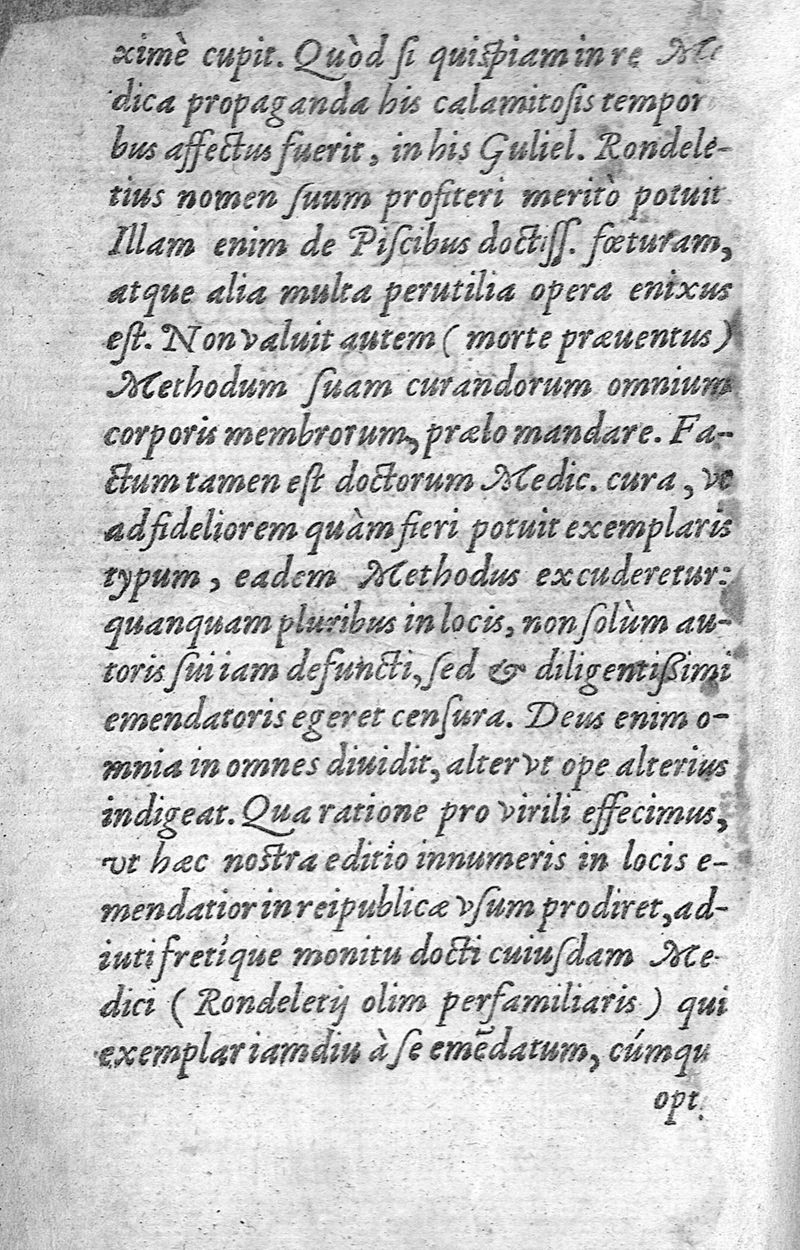 ximè cupit. Quòd ſi quiſpiam in re Me
dica propaganda his calamitoſis tempor
bus affectus fuerit, in his Guliel. Rondele-
tius nomen ſuum profiteri meritò potuit
Illam enim de Piſcibus doctiſſ. fœturam,
atque alia multa perutilia opera enixus
eſt. Non valuit autem ( morte præuentus )
Methodum ſuam curandorum omnium
corporis membrorum, prælo mandare. Fa-
ctum tamen eſt doctorum Medic. cura, vt
ad fideliorem quàm fieri potuit exemplaris
typum, eadem Methodus excuderetur:
quanquam pluribus in locis, non ſolùm au-
toris ſui iam defuncti, ſed & diligentißimi
emendatoris egeret cenſura. Deus enim o-
mnia in omnes diuidit, alter vt ope alterius
indigeat. Qua ratione pro virili effecimus,
vt hæc noſtra editio innumeris in locis e-
mendatior in reipublicæ vſum prodiret, ad-
iuti fretíque monitu docti cuiuſdam Me-
dici ( Rondeletij olim perfamiliaris ) qui
exemplar iamdiu à ſe emēdatum, cúmqu
opt